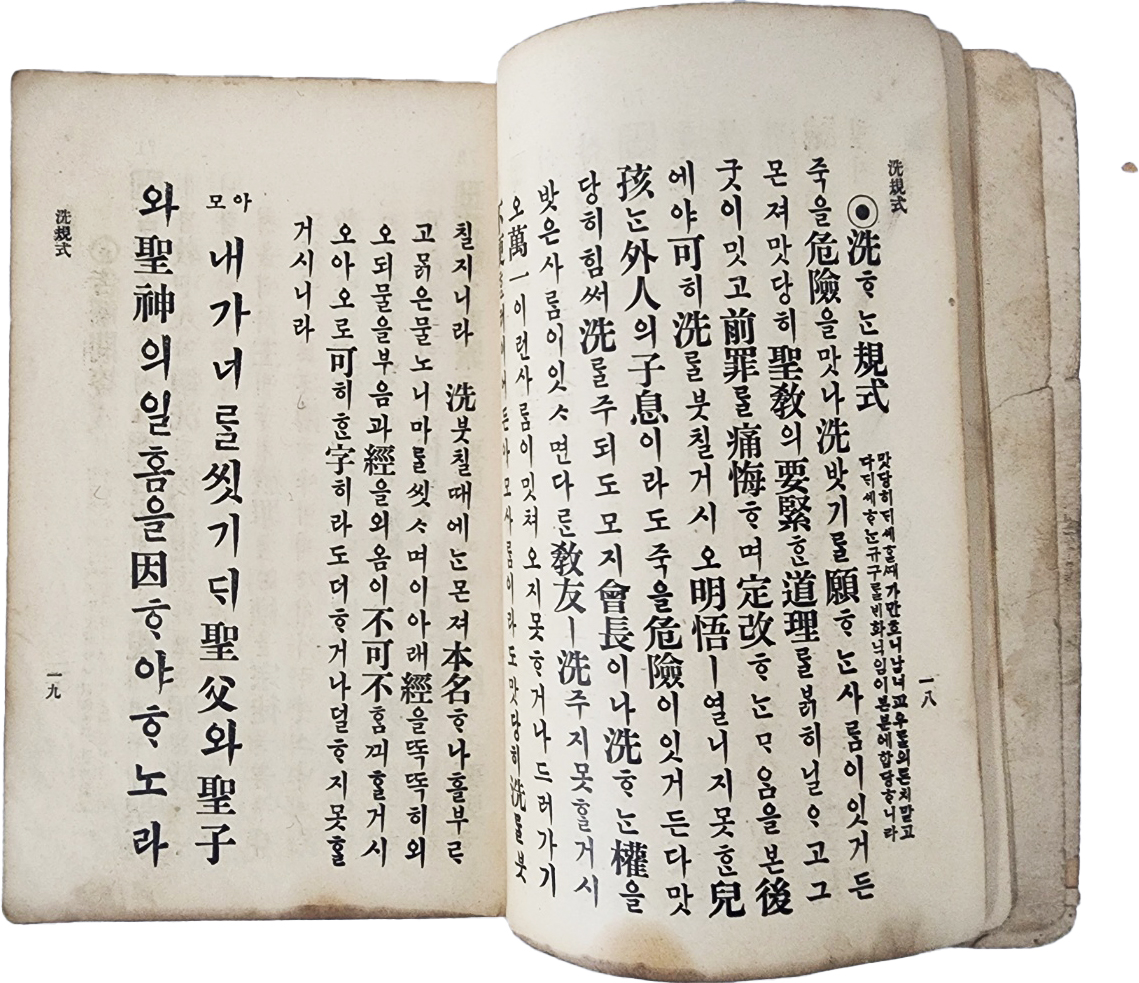 洗規式
一八
◉洗ᄒᆞᄂᆞᆫ規式
맛당히ᄃᆡ셰ᄒᆞᆯᄶᅢ가만ᄒᆞ니남녀교우들의론치말고
다ᄃᆡ셰ᄒᆞᄂᆞᆫ규구ᄅᆞᆯᄇᆡ화닉임이본분에합당ᄒᆞ니라
죽을危險을맛나洗밧기ᄅᆞᆯ願ᄒᆞᄂᆞᆫ사ᄅᆞᆷ이잇거든
몬져맛당히聖敎의要緊ᄒᆞᆫ道理ᄅᆞᆯᄇᆞᆰ히닐ᄋᆞ고그
굿이밋고前罪ᄅᆞᆯ痛悔ᄒᆞ며定改ᄒᆞᄂᆞᆫᄆᆞᄋᆞᆷ을본後
에야可히洗ᄅᆞᆯ붓칠거시오明悟ㅣ열니지못ᄒᆞᆫ兒
孩ᄂᆞᆫ外人의子息이라도죽을危險이잇거든다맛
당히힘써洗ᄅᆞᆯ주되도모지會長이나洗ᄒᆞᄂᆞᆫ權을
밧은사ᄅᆞᆷ이잇ᄉᆞ면다ᄅᆞᆫ敎友ㅣ洗주지못ᄒᆞᆯ거시
오萬一이런사ᄅᆞᆷ이밋쳐오지못ᄒᆞ거나드러가기
든아모사ᄅᆞᆷ이라도맛당히洗ᄅᆞᆯ붓
칠지니라 洗붓칠때에ᄂᆞᆫ몬져本名ᄒᆞ나흘부ᄅᆞ
고ᄆᆞᆰ은물노니마ᄅᆞᆯ씻ᄉᆞ며이아래經을ᄯᅩᆨᄯᅩᆨ히외
오되물을부음과經을외옴이不可不ᄒᆞᆷᄭᅴᄒᆞᆯ거시
오아오로可히ᄒᆞᆫ字히라도더ᄒᆞ거나덜ᄒᆞ지못ᄒᆞᆯ
거시니라
아모 내가너ᄅᆞᆯ씻기ᄃᆡ聖父와聖子
와聖神의일홈을因ᄒᆞ야ᄒᆞ노라
洗規式
一九